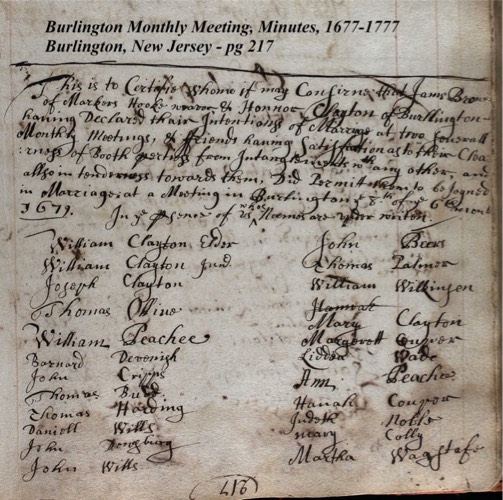 Burlington Monthly Meeting, Minutes, 1677-1777
Burlington, New Jersey - pg 217
This is to Certifie whome it may Conserne that James Browne
of Markers Hooke weaver & Honnor Clayton of Burllington
having Declared thair Intentions of Marriag at two severall
Monthly Meetings, & ffriends having Sattisfaction as to their Clea
:rness of Booth pertyes from Intanglements wth any other, and
also in tenderness towards them, Did Permit them to be Joyned
in Marriage at a Meeting in Burlington ye 8th of ye 6
1679. In ye presence of us whose Nasmes are under writen.
William Clayton Elder
William Clayton Jund.
Joseph Clayton
Thomas Olive
William Peachee
Barnard Devenish
John Cripps
Thomas Budd
Thomas Harding
Daniell Wills
John
John Wills
John Beers
Thomas Palmer
William Wilkinsen
Hannah
Mary Clayton
Margerett
Liddea Wade
Ann Peachee
Hanah Coupor
Judeth Noble
Mary Colly
Martha Wagstafe
217